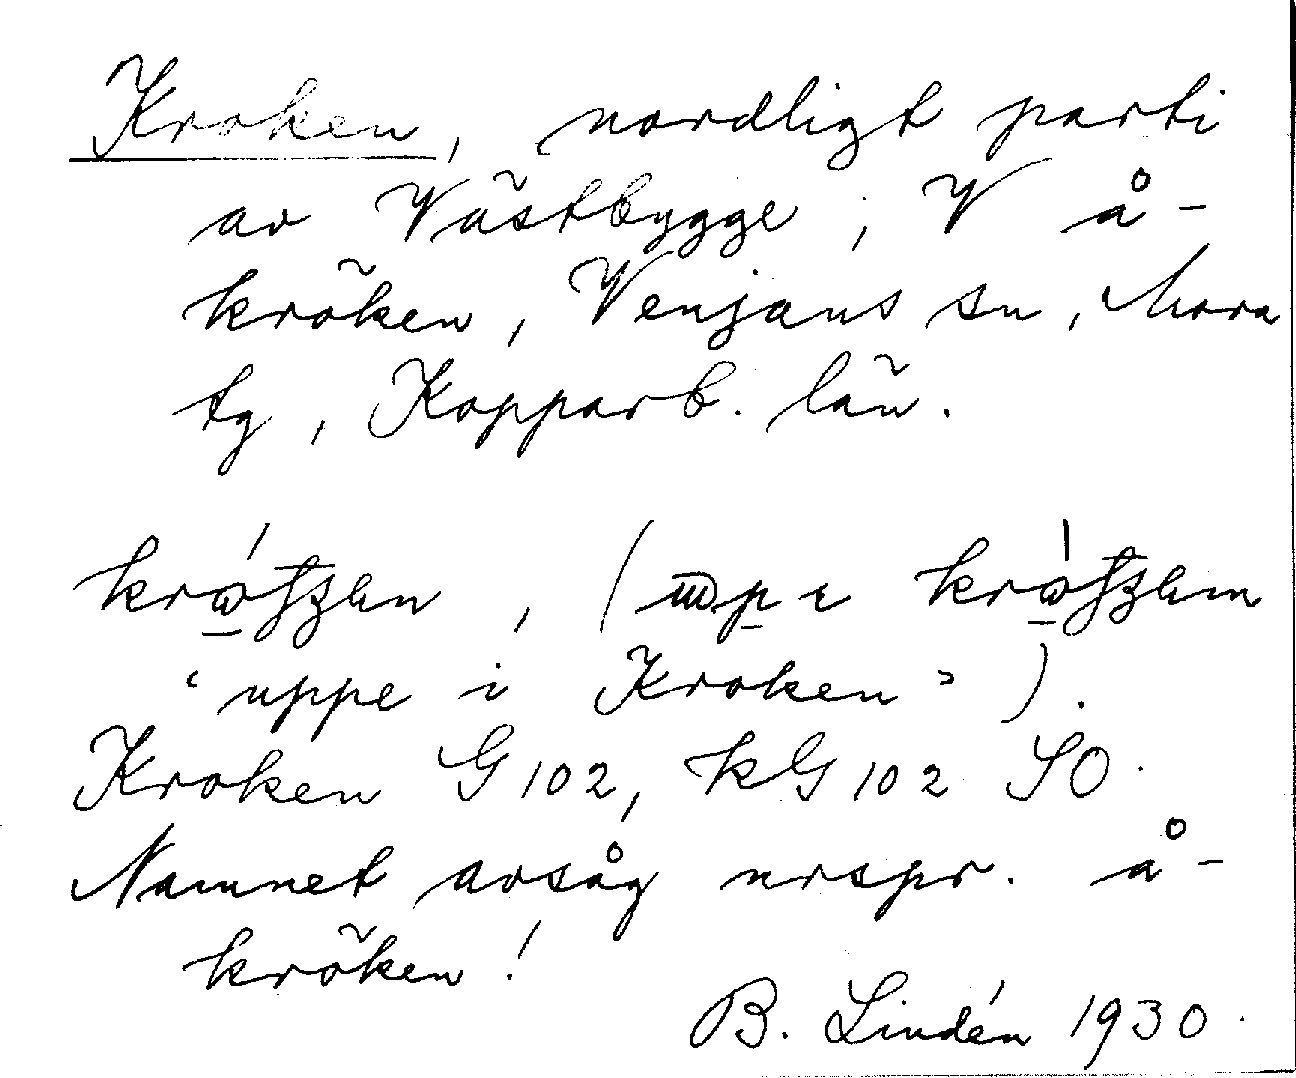 Kroken, nordligt parti
av Västbygge, V å-
kröken, Venjans sn, Mora
tg, Kopparb. län.
'uppe i Kroken').
Kroken G 102, kG 102 SO.
Namnet avsåg urspr. å-
kröken!
B. Lindén 1930.